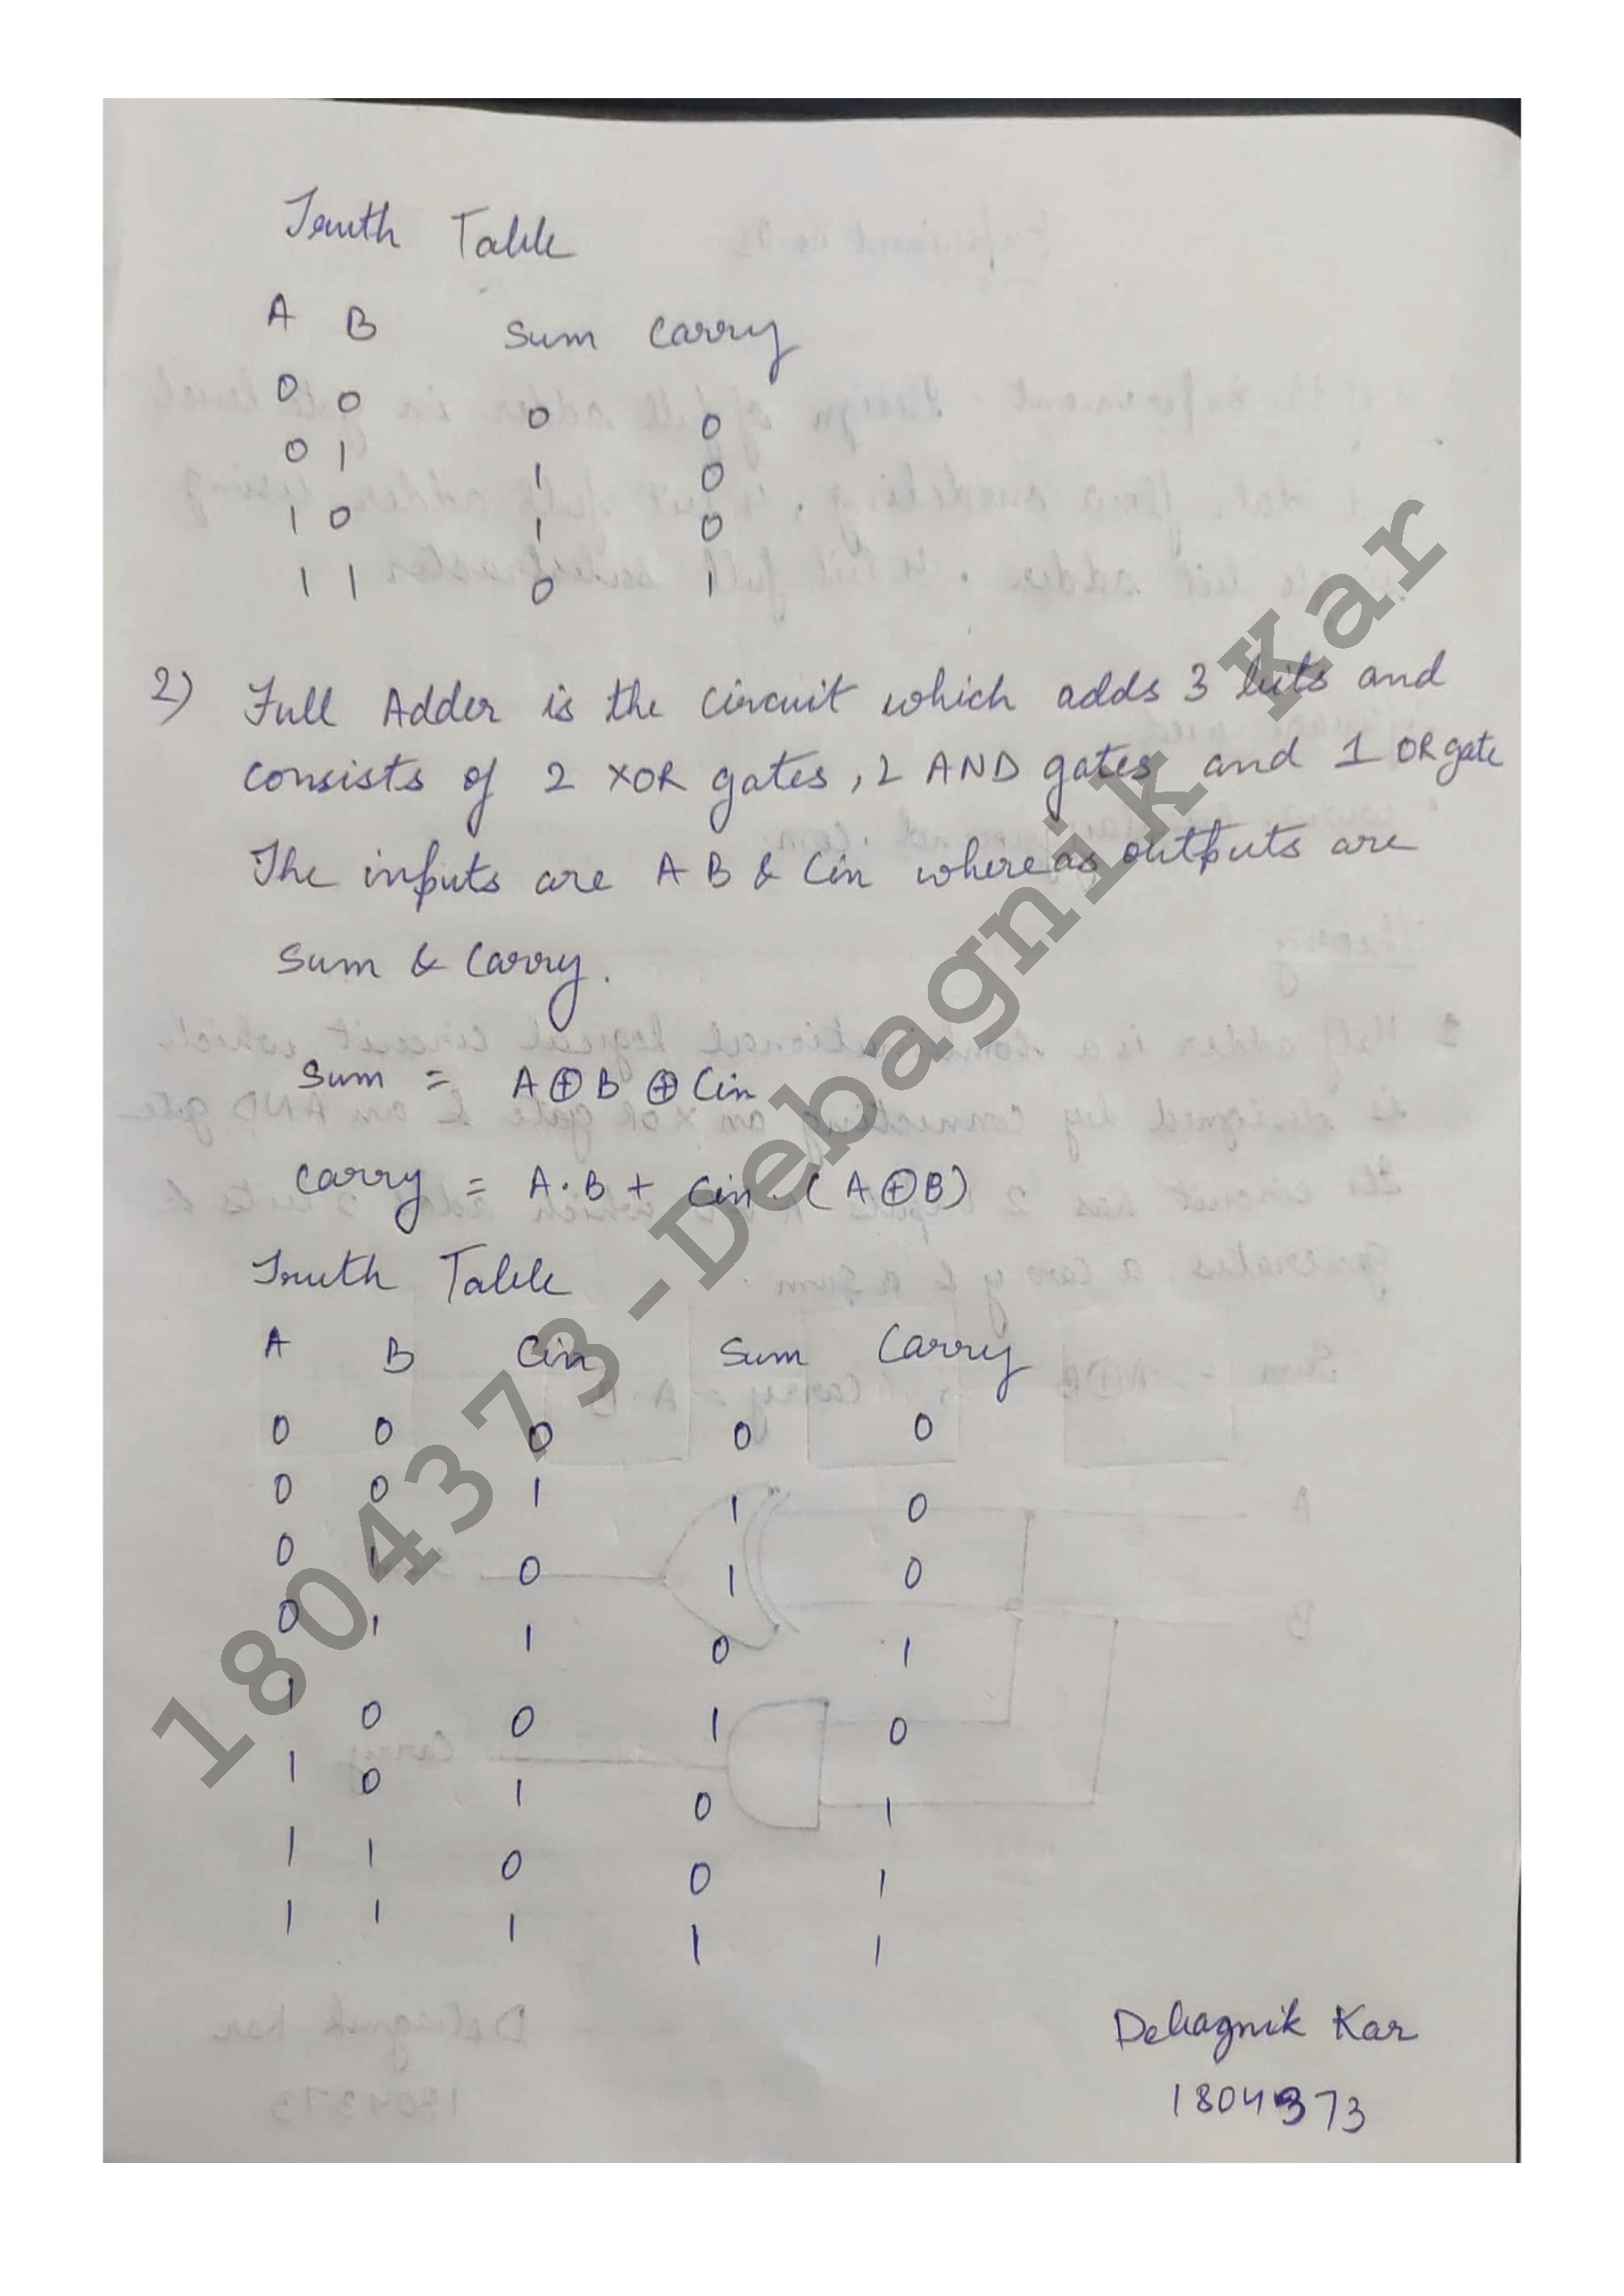 Truth Table
A B Sum Carry
0 0 0 0
0 1 1 0
1 0 1 0
1 1 0 1
2) Full Adder is the circuit which adds 3 bits and
consists of 2 XOR gates, 2 AND gates and 1 OR gate
The inputs are A B & Cin whereas outputs are
Sum & Carry.
Sum = A⊕B ⊕ Cin
Carry = A·B + Cin·(A⊕B)
Truth Table
A B Cin Sum Carry
0 0 0 0 0
0 0 1 1 0
0 1 0 1 0
0 1 1 0 1
1 0 0 1 0
1 0 1 0 1
1 1 0 0 1
1 1 1 1 1
Debagnik Kar
1804373
1804373-Debagnik Kar